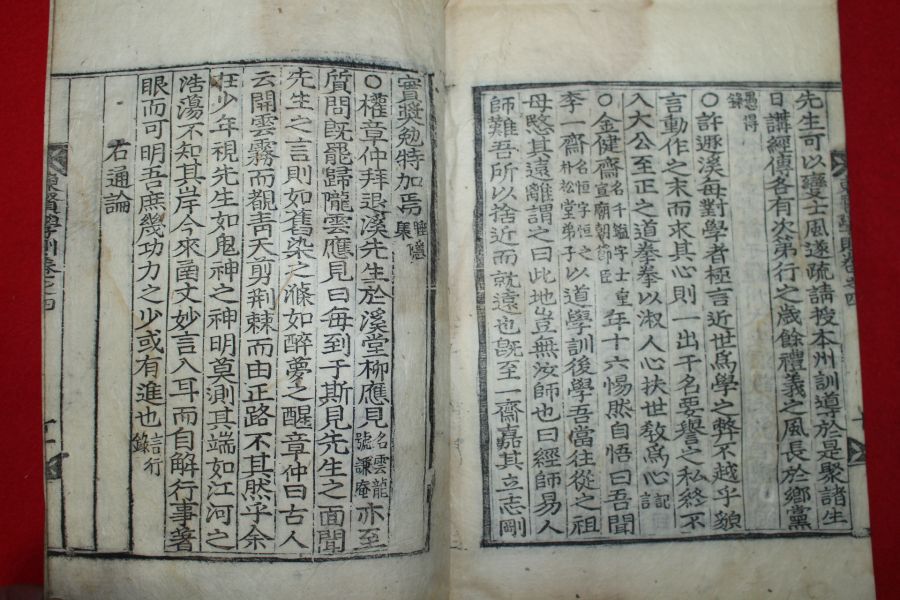 先生可以變士風遂疏請授本州訓導於是聚諸生
日講經傳各有次第行之歲餘禮義之風長於鄉黨
愚得錄
○許遯溪母對學者極言近世爲學之弊不越乎貌
言動作之末而求其心則一出于名要譽之私終不
入大公至正之道拳拳以淑人心扶世敎爲心記
○金健齋名千鎰字士重宣廟朝節臣年十六惕然自悟曰吾聞
李一齋名恒字恒之朴松堂弟子以道學訓後學吾當往從之祖
母愍其遠離謂之曰此地豈無汝師也曰經師易人
師難吾所以捨近而就遠也旣至一齋嘉其立志剛
實奬勉特加焉
○權章仲拜退溪先生於溪堂柳應見名雲龍號謙庵亦至
質問旣罷歸隴雲應見曰每到于斯見先生之面聞
先生之言則如舊染之滌如醉夢之醒章仲曰古人
云開雲霧而觀靑天剪荆棘而由正路不其然乎余
在少年視先生如鬼神之神明莫測其端如江河之
浩蕩不知其岸今來函丈妙言入耳而自解行事著
眼而可明吾庶幾功力之少或有進也言行錄
右通論